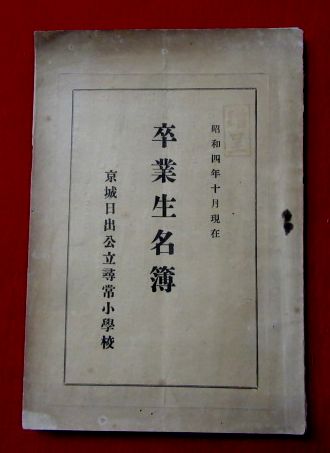 昭和四年十月現在
卒業生名簿
京城日出公立尋常小學校